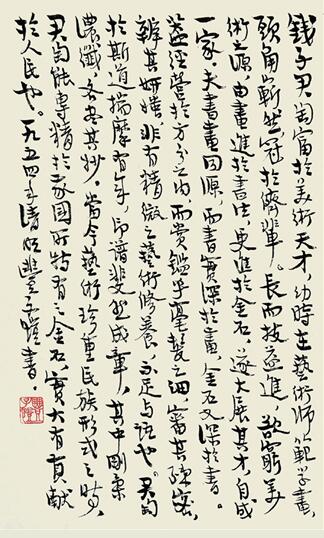 钱子君匋富於美術天才，幼時在藝術师範学畫，
頭角嶄然，冠於儕輩。長而技益進，欲窮美
術之源，由畫進於書法，更進於金石，遂大展其才，自成
一家。夫書畫同源，而書實深於畫，金石又深於書。
蓋經營於方寸之内，而賞鑑乎毫髮之細，審其疎密，
辨其妍媸，非有精微之藝術修養，不足与語也。君匋
於斯道揣摩有年，印譜斐然成章，其中剛柔
濃纖，各尽其妙。當今藝術珍重民族形式之時，
君匋能專精於我國所特有之金石，實大有貢献
於人民也。一九五四年清明豐子愷書。